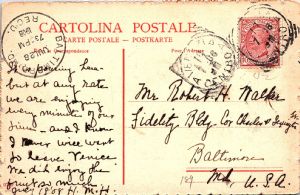 CARTOLINA POSTALE
CARTE POSTALE - POSTKARTE
Pour l'Adresse
but at any rate
we are enjoying
every minute of our
time and I know
I never will want
to leave Venice
We did enjoy the
fruit so much
M.H.
Mr. Robert H Walker
Fidelity Bldg Cor Charles &
Baltimore
Md. U.S.A.